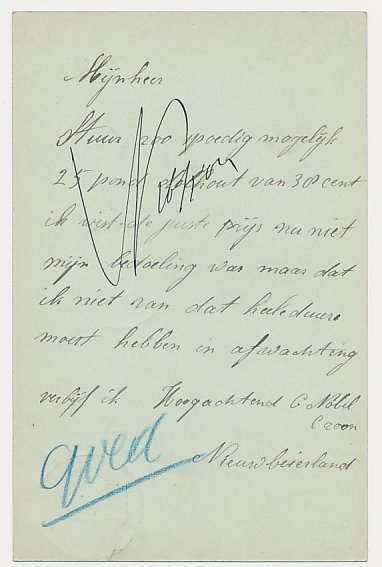 Mijnheer
Stuur zoo spoedig mogelijk
25 pond van 38 cent
ik wist de juste prijs nu niet
mijn bedoeling was maar dat
ik niet van dat heele duure
moest hebben in afwachting
verblijf ik Hoogachtend C Nobel
Czoon
Nieuwbeierland
goed